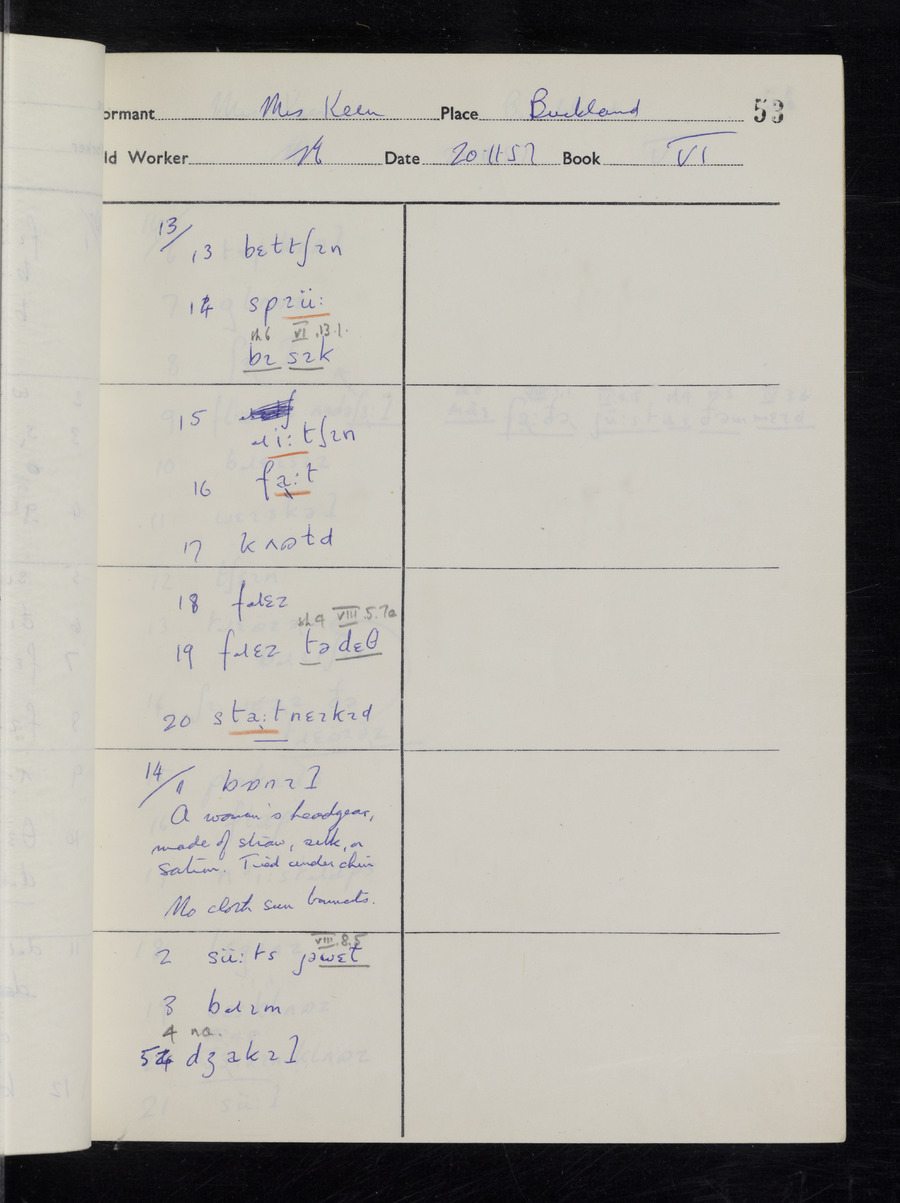 ormant Mrs Keen Place Buckland 53
ld Worker Date 20·11·57 Book VI
13/
13 bɛttʃɪn
14 spɹüː
sh 6 VI.13.1.
bɪ sɪk
15
ɹiːtʃɪn
16 fa̤ːt
17 kʌətd
18 fɹɛɪ
sh 9 VIII.5.7a
19 fɹɛɪ tə dɛθ
20 sta̤ːtnɛɪkɪd
14/ 1 bɒnɪʔ
A woman's headgear,
made of straw, silk, or
satin. Tied under chin
No cloth sun bonnets.
VIII.8.5
2 süːts jəwɛɫ
3 bɹɪm
4 na.
5 dʒakɪʔ